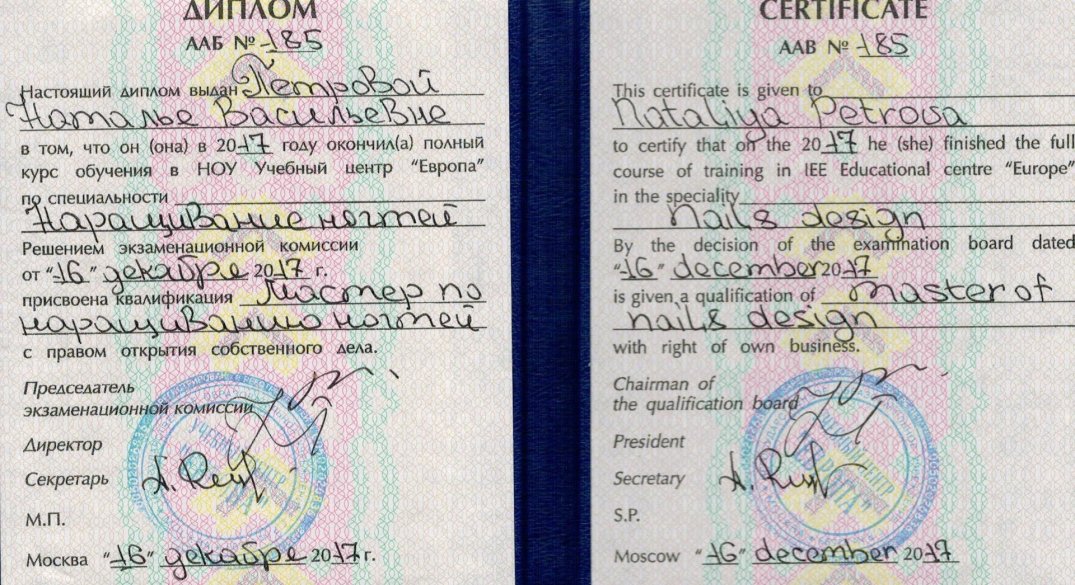 ДИПЛОМ
ААБ № 185
Настоящий диплом выдан Петровой
Наталье Васильевне
в том, что он (она) в 2017 году окончил(а) полный
курс обучения в НОУ Учебный центр "Европа"
по специальности
Наращивание ногтей
Решением экзаменационной комиссии
от "16" декабря 2017 г.
присвоена квалификация Мастер по
наращиванию ногтей
с правом открытия собственного дела.
Председатель
экзаменационной комиссии
Директор
Секретарь
М.П.
Москва "16" декабря 2017 г.
CERTIFICATE
AAB № 185
This certificate is given to
Nataliya Petrova
to certify that on the 2017 he (she) finished the full
course of training in IEE Educational centre "Europe"
in the speciality
nails design
By the decision of the examination board dated
"16" december 2017
is given a qualification of master of
nails design
with right of own business.
Chairman of
the qualification board
President
Secretary
S.P.
Moscow "16" december 2017